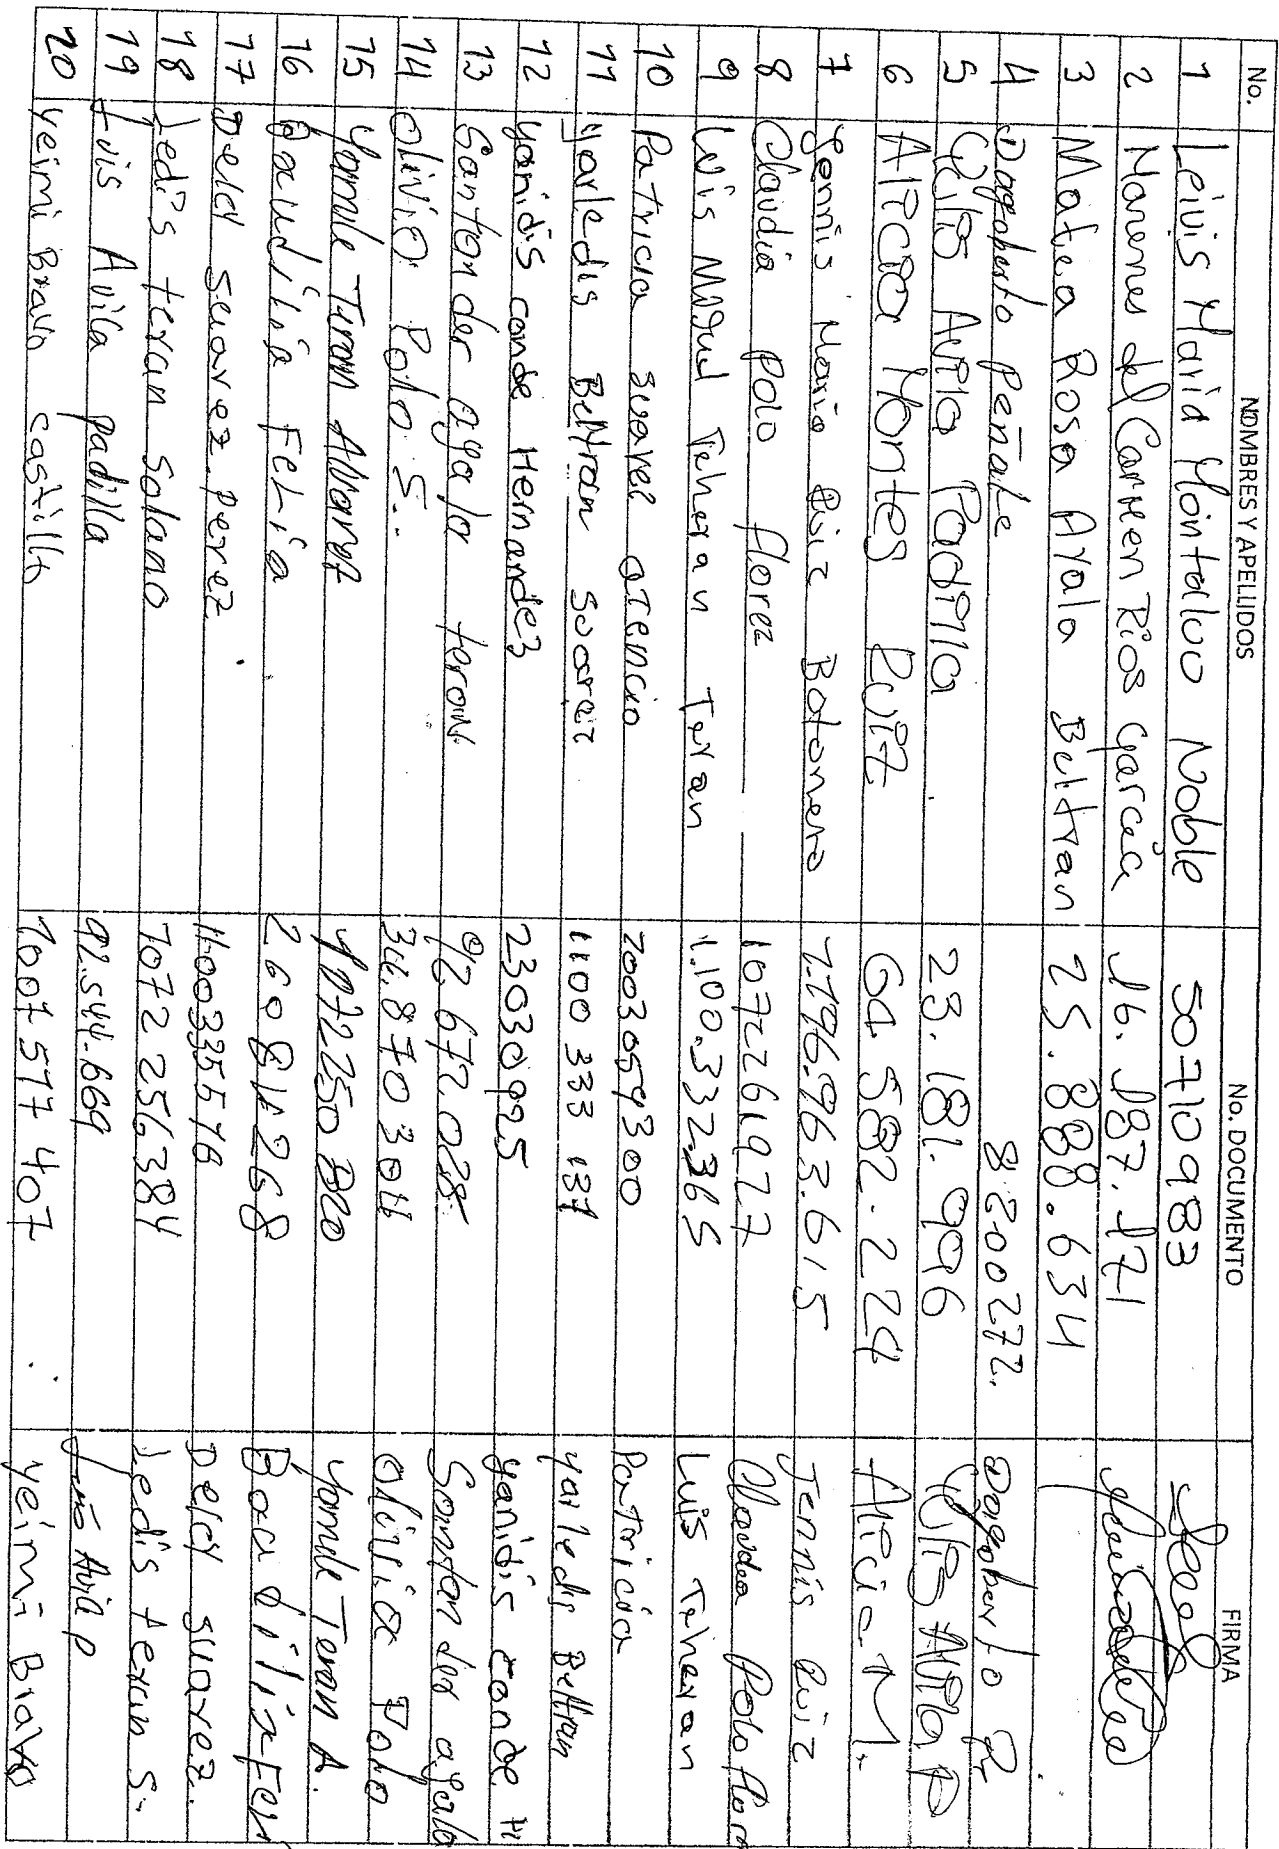 No. NOMBRES Y APELLIDOS No. DOCUMENTO FIRMA
1 Leivis María Montalvo Noble 50710983
2 Marenes del Carmen Ríos García 26.187.171
3 Matea Rosa Ayala Beltran 25.888.634
4 Dagoberto Peñate 8200272. Dagoberto P
5 Avila Padilla 23.181.996 Avila P
6 Alicia Montes Ruiz 64.582.224 Alicia M.
7 Jennis Maria Ruiz 1.196.963.615 Jennis Ruiz
8 Claudia polo florez 1072261927 Claudia Polo flore
9 Luis Miguel Teheran Teran 1.100.332365 Luis Teheran
10 Patricia suarez atencio 2003059300 Patricia
11 yarledis Beltran Suarez 1100 333 137 yarledis Beltran
12 yanidis conde Hernandez 23030925 yanidis conde H
13 Santander ayala teran 92.672.028 Santander ayala
14 Olivia Polo S. 34.870304 olivia Polo
15 Yamile Teran Alvarez 1072250 Yamile Teran A.
16 Baudilia Feria 26081268 Baudilia Feri
17 Delcy suarez perez 1100335576 Delcy suarez.
18 Ledis teran Solano 1072256384 Ledis teran S.
19 Luis Avila padilla 92.544.669 Luis Avila p
20 yeimi Bravo castillo 1007577407 yeimi Bravo